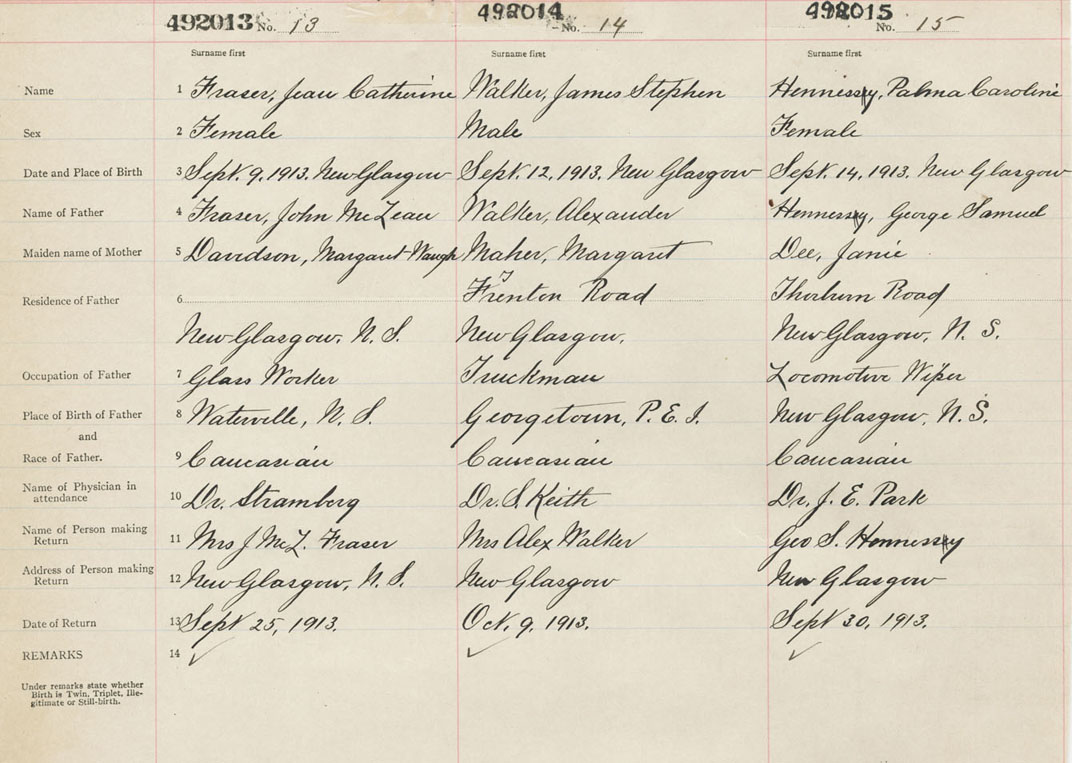 492013 No. 13 492014 No. 14 492015 No. 15
Surname first Surname first Surname first
Name 1 Fraser, Jean Catherine Walker, James Stephen Hennessy, Palma Caroline
Sex 2 Female Male Female
Date and Place of Birth 3 Sept. 9, 1913. New Glasgow Sept. 12, 1913. New Glasgow Sept. 14, 1913. New Glasgow
Name of Father 4 Fraser, John McLean Walker, Alexander Hennessy, George Samuel
Maiden name of Mother 5 Davidson, Margaret Waugh Maher, Margaret Dee, Janie
Residence of Father 6 Trenton Road Thorburn Road
New Glasgow, N. S. New Glasgow, New Glasgow, N. S.
Occupation of Father 7 Glass Worker Truckman Locomotive Wiper
Place of Birth of Father 8 Waterville, N. S. Georgetown, P. E. I. New Glasgow, N. S.
and
Race of Father. 9 Caucasian Caucasian Caucasian
Name of Physician in
attendance 10 Dr. Stramberg Dr. S Keith Dr. J. E. Park
Name of Person making
Return 11 Mrs J McL. Fraser Mrs Alex Walker Geo S. Hennessy
Address of Person making
Return 12 New Glasgow, N. S. New Glasgow New Glasgow
Date of Return 13 Sept 25, 1913. Oct. 9, 1913. Sept 30, 1913.
REMARKS 14
Under remarks state whether
Birth is Twin, Triplet, Ille-
gitimate or Still-birth.